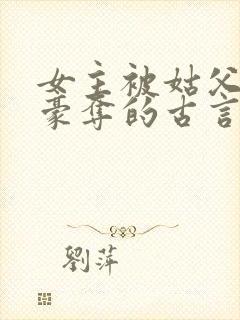 女主被姑父
豪夺的古言
劉萍